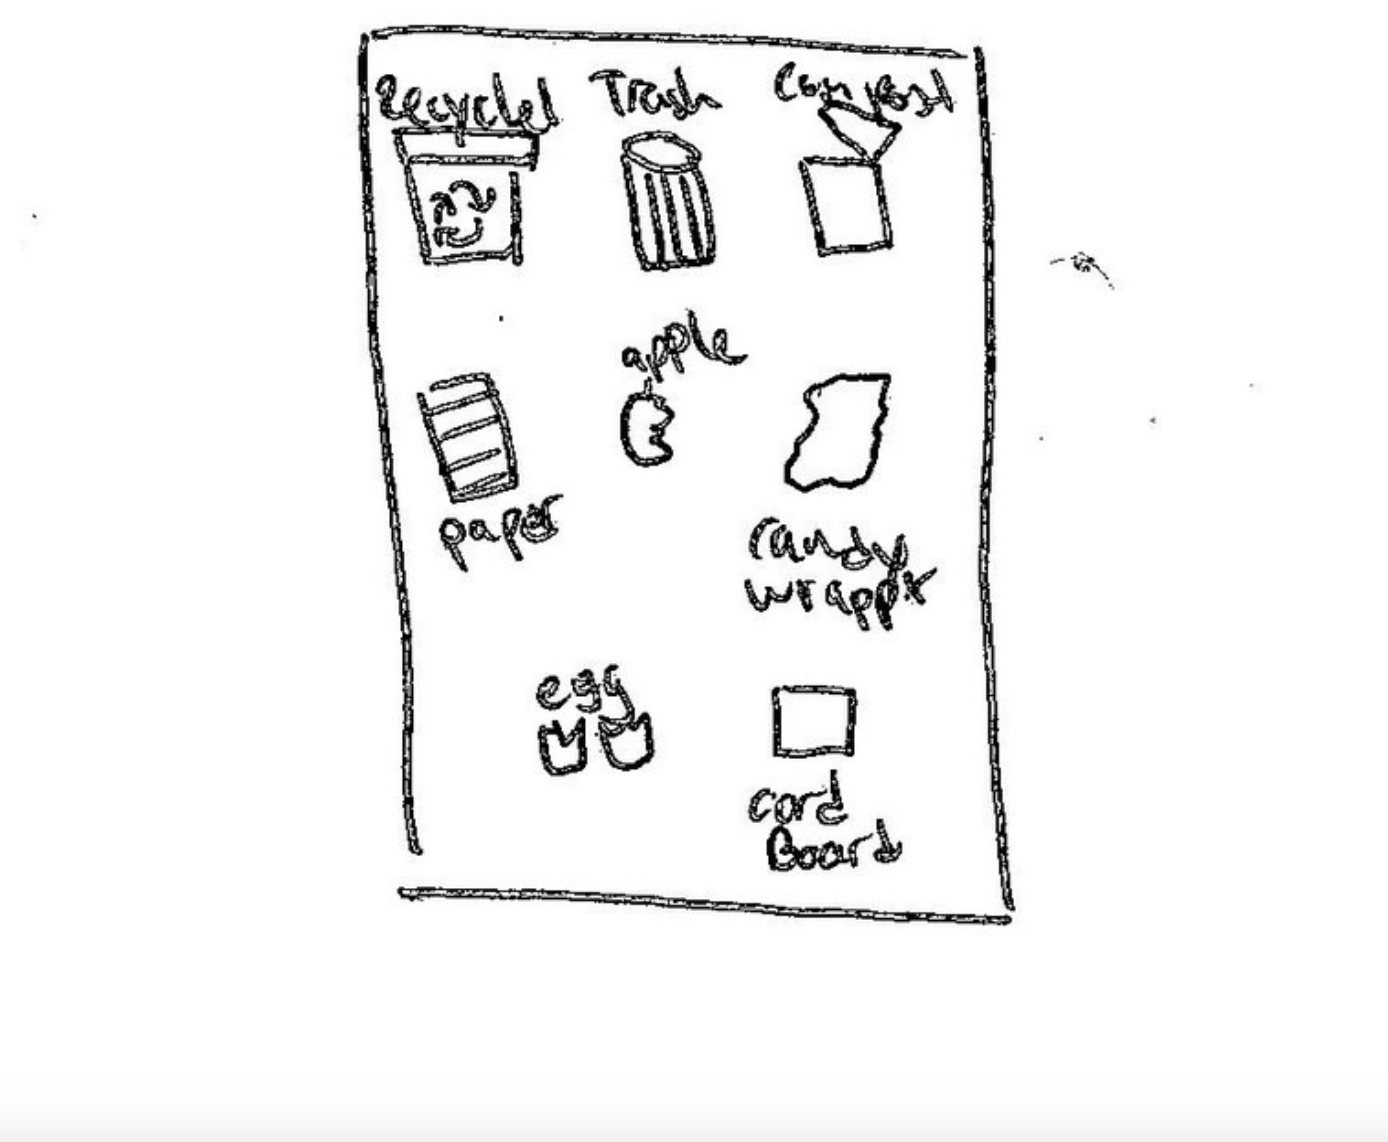 Recycle!
Trash
Compost
apple
paper
candy
wrappr
egg
cord
Board